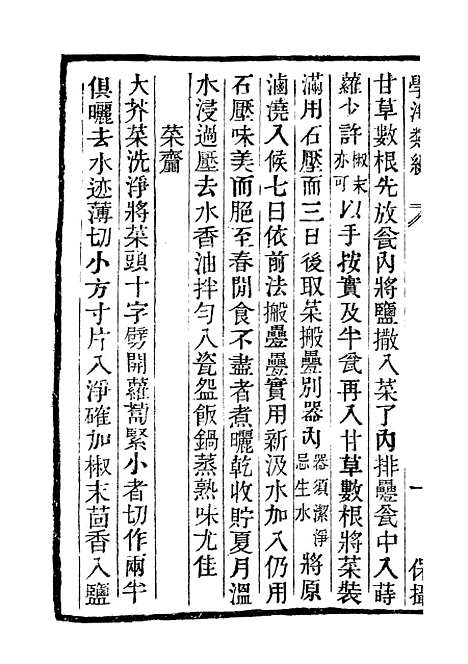 學海類編
甘草數根先放瓮內將鹽撒入菜了內排疊瓮中入蒔
蘿少許椒末亦可以手按實及半瓮再入甘草數根將菜裝
滿用石壓面三日後取菜搬疊別器內器須潔淨忌生水將原
滷澆入候七日依前法搬疊疊實用新汲水加入仍用
石壓味美而脆至春間食不盡者煮曬乾收貯夏月溫
水浸過壓去水香油拌勻入瓷盌飯鍋蒸熟味尤佳
菜齏
大芥菜洗淨將菜頭十字劈開蘿蔔緊小者切作兩半
俱曬去水迹薄切小方寸片入淨確加椒末茴香入鹽